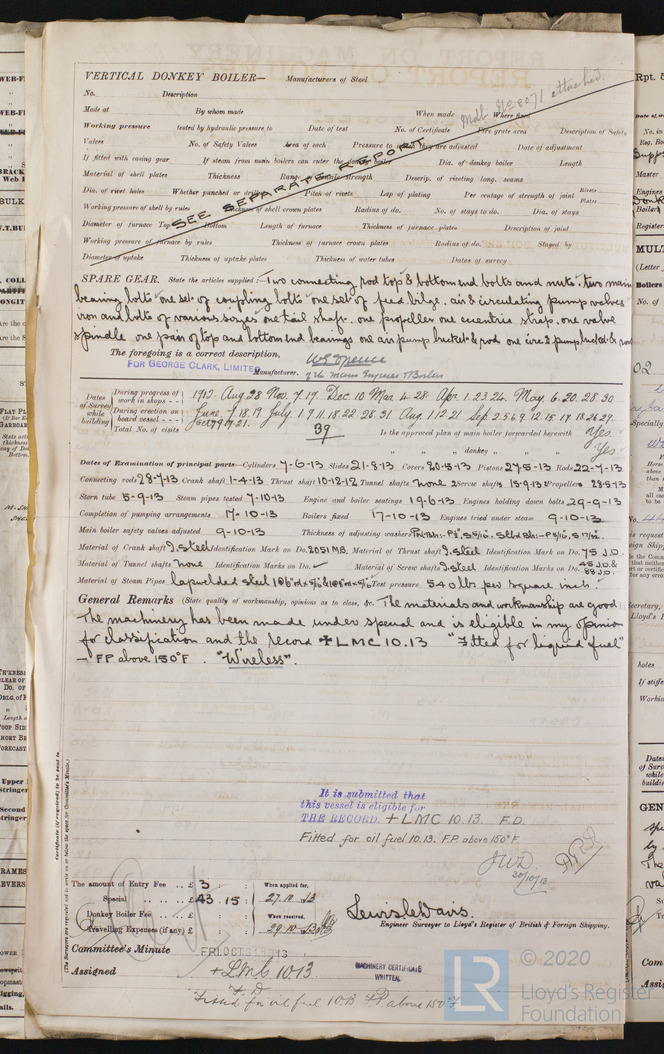 VERTICAL DONKEY BOILER— Manufacturers of Steel
Mdb No 8071 attached.
No. Description
Made at By whom made When made Where fixed
Working pressure tested by hydraulic pressure to Date of test No. of Certificate Fire grate area Description of Safety
Valves No. of Safety Valves Area of each Pressure to which they are adjusted Date of adjustment
If fitted with easing gear If steam from main boilers can enter the donkey boiler Dia. of donkey boiler Length
Material of shell plates Thickness Range of tensile strength Descrip. of riveting long. seams
Dia. of rivet holes Whether punched or drilled Pitch of rivets Lap of plating Per centage of strength of joint Rivets Plates
Working pressure of shell by rules Thickness of shell crown plates Radius of do. No. of stays to do. Dia. of stays
SEE SEPARATE REPORT
Diameter of furnace Top Bottom Length of furnace Thickness of furnace plates Description of joint
Working pressure of furnace by rules Thickness of furnace crown plates Radius of do. Stayed by
Diameter of uptake Thickness of uptake plates Thickness of water tubes Dates of survey
SPARE GEAR. State the articles supplied:— Two connecting rod top & bottom end bolts and nuts. two main
bearing bolts one set of coupling bolts one set of feed bilge. air & circulating pump valves
iron and bolts of various sizes one tail shaft. one propeller one eccentric strap. one valve
spindle one pair of top and bottom end bearings one air pump bucket & rod one circg pump bucket & rod
The foregoing is a correct description,
FOR GEORGE CLARK, LIMITED Manufacturer.
Dates of Survey while building
During progress of work in shops - - 1912. Aug 28 Nov. 7. 19 Dec 10 Mar 4. 28 Apr 1. 23. 24. May 6. 20. 28. 30
During erection on board vessel - - - June. 7. 18. 19 July 1. 9. 11. 18. 22. 28. 31 Aug 1 12 21 Sep 2. 5. 6. 9. 12. 15. 17. 18. 26. 29.
Oct 7. 9. 17. 21.
Total No. of visits 39 Is the approved plan of main boiler forwarded herewith Yes.
" " " donkey " " " Yes
Dates of Examination of principal parts—Cylinders 7-6-13 Slides 21-8-13 Covers 20-5-13 Pistons 27-5-13 Rods 22-7-13
Connecting rods 28-7-13 Crank shaft 1-4-13 Thrust shaft 10-12-12 Tunnel shafts None Screw shafts 15-9-13 Propeller 28-5-13
Stern tube 5-9-13 Steam pipes tested 7-10-13 Engine and boiler seatings 19-6-13 Engines holding down bolts 29-9-13
Completion of pumping arrangements 17-10-13 Boilers fixed 17-10-13 Engines tried under steam 9-10-13
Main boiler safety valves adjusted 9-10-13 Thickness of adjusting washers
Material of Crank shaft I. steel Identification Mark on Do. 2051 MB. Material of Thrust shaft I. steel Identification Mark on Do. 75 J.D.
Material of Tunnel shafts None Identification Marks on Do. ✓ Material of Screw shafts I. steel Identification Marks on Do. 45 J.D. & 88 J.D.
Material of Steam Pipes Lapwelded steel Test pressure 540 lbs. per square inch.
General Remarks (State quality of workmanship, opinions as to class, &c. The materials and workmanship are good
The machinery has been made under special and is eligible in my opinion
for classification and the record ✠ LMC 10.13 "Fitted for liquid fuel"
— "FP above 150°F. "Wireless".
It is submitted that
this vessel is eligible for
THE RECORD. + LMC 10.13. F.D.
Fitted for oil fuel 10.13. F.P. above 150°F
JWD
30/10/13
The amount of Entry Fee .. £ 3 : : When applied for,
Special .. £ 43 . 15 : 27.10.13
Donkey Boiler Fee .. £ : : When received,
Travelling Expenses (if any) £ : : 29.10.13
Lewis le Davis.
Engineer Surveyor to Lloyd's Register of British & Foreign Shipping.
Committee's Minute FRI. OCT 31 1913
Assigned + LMC 10.13
F.D.
Fitted for oil fuel 10.13 F.P. above 150°F
MACHINERY CERTIFICATE
WRITTEN.
LR © 2020
Lloyd's Register
Foundation